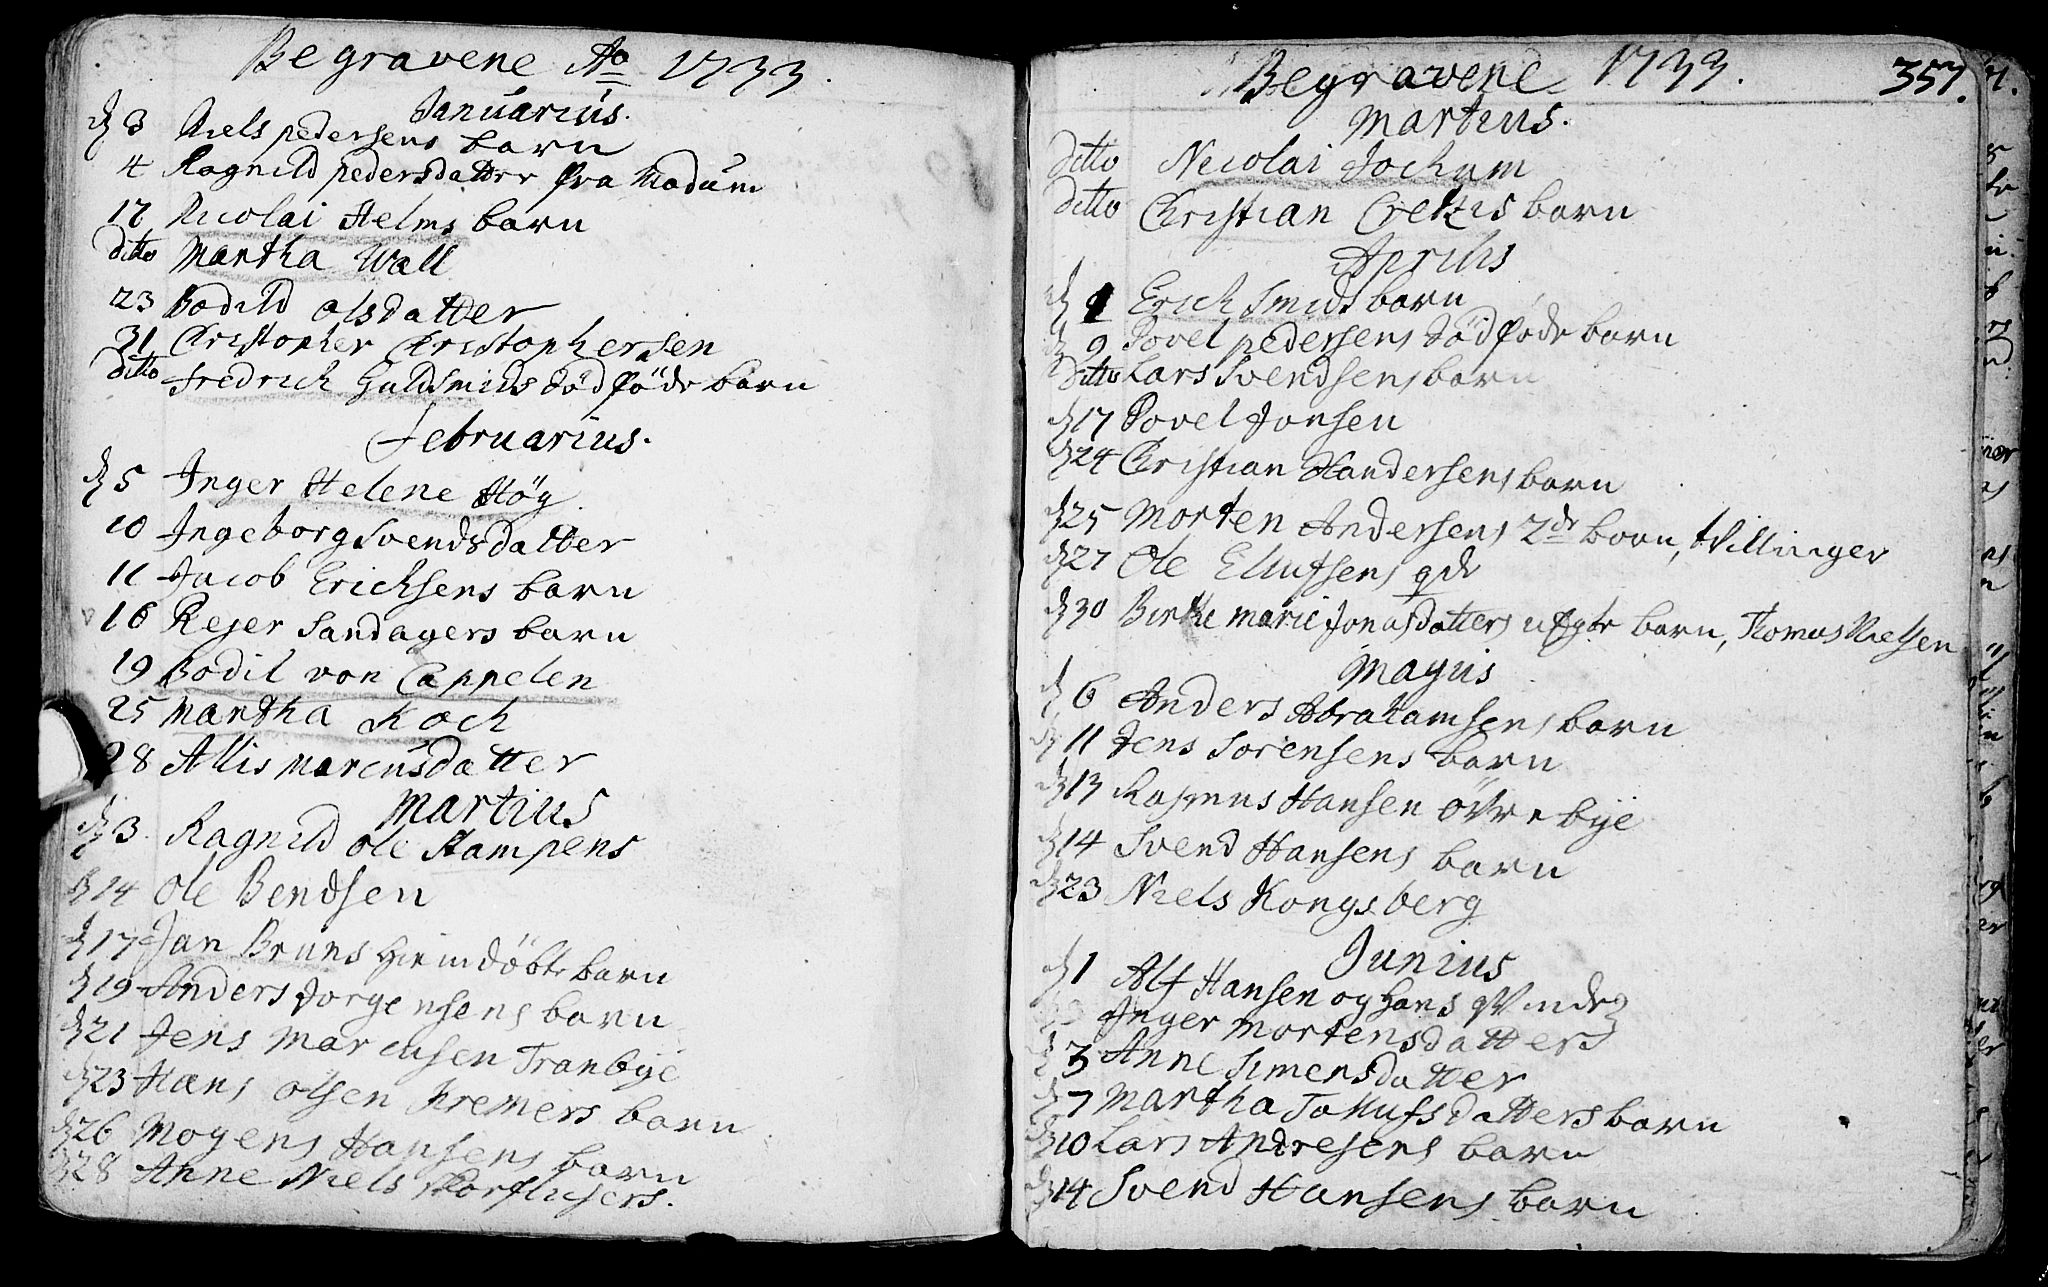 Begravene Ao 1733.
Januarius.
d 3 Niels pedersens barn
4 Ragnild pedersdatter fra Modum
17 Nicolai Helms barn
ditto Martha Wall
23 Bodild olsdatter
31 Christopher Christophersen
ditto Fredrich Guldsmids dödföde barn
Februarius.
d 5 Inger Helene Hög
10 Ingeborg Svendsdatter
11 Jacob Erichsens barn
16 Rejer Sandagers barn
19 Bodil von Cappelen
25 Martha Koch
28 Allis Marcusdatter
Martius
d 3 Ragnild Ole Stampens
d 14 Ole Bendsen
d 17 Jan Bruns hiemdöbte barn
d 19 Anders Jorgensens barn
d 21 Jens Marcusen Tranbye
d 23 Hans Olsen Kremers barn
d 26 Mogens Hansens barn
d 28 Anne Niels
Begravene 1733. 357.
Martius.
ditto Nicolai Jochum
ditto Christian barn
Aprilis
d 1 Erich Smids barn
d 9 Povel pedersens dödföde barn
ditto Lars Svendsens barn
d 17 Povel Jonsen
d 24 Christian Handersens barn
d 25 Morten Andersens 2de born, tvillinger
d 27 Ole Ellufsens qde
d 30 Birthe Marie Jonasdatters uægte barn, Thomas Nielsen
Majus
d 6 Anders Abrahamsens barn
d 11 Jens Sorensens barn
d 13 Rasmus Hansen övrebye
d 14 Svend Hansens barn
d 23 Niels Kongsberg
Junius
d 1 Alf Hansen og Hans qvinde
Inger Mortensdatters
d 3 Anne Simensdatter
d 7 Martha Tollufsdatters barn
d 10 Lars Andresens barn
d 14 Svend Hansens barn